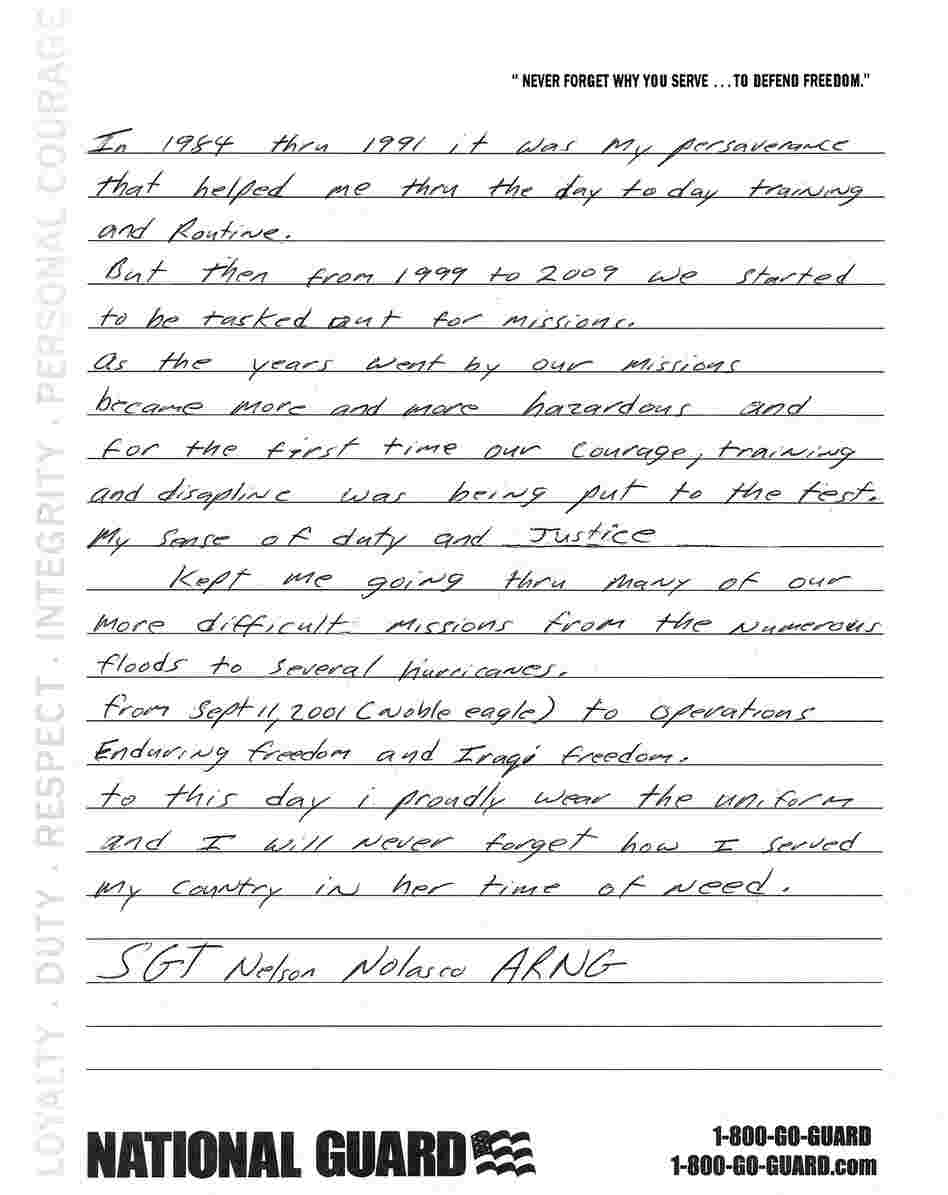 "NEVER FORGET WHY YOU SERVE ... TO DEFEND FREEDOM."
In 1984 thru 1991 it was my persaverance
that helped me thru the day to day training
and Routine.
But then from 1999 to 2009 we started
to be tasked out for missions.
As the years went by our missions
became more and more hazardous and
for the first time our courage, training
and disapline was being put to the test.
My sense of duty and Justice
Kept me going thru many of our
more difficult missions from the numerous
floods to several hurricanes.
from Sept 11, 2001 (Noble eagle) to operations
Enduring freedom and Iraqi freedom.
to this day i proudly wear the uniform
and I will never forget how I served
my country in her time of need.
SGT Nelson Nolasco ARNG
LOYALTY · DUTY · RESPECT · INTEGRITY · PERSONAL COURAGE
NATIONAL GUARD
1-800-GO-GUARD
1-800-GO-GUARD.com